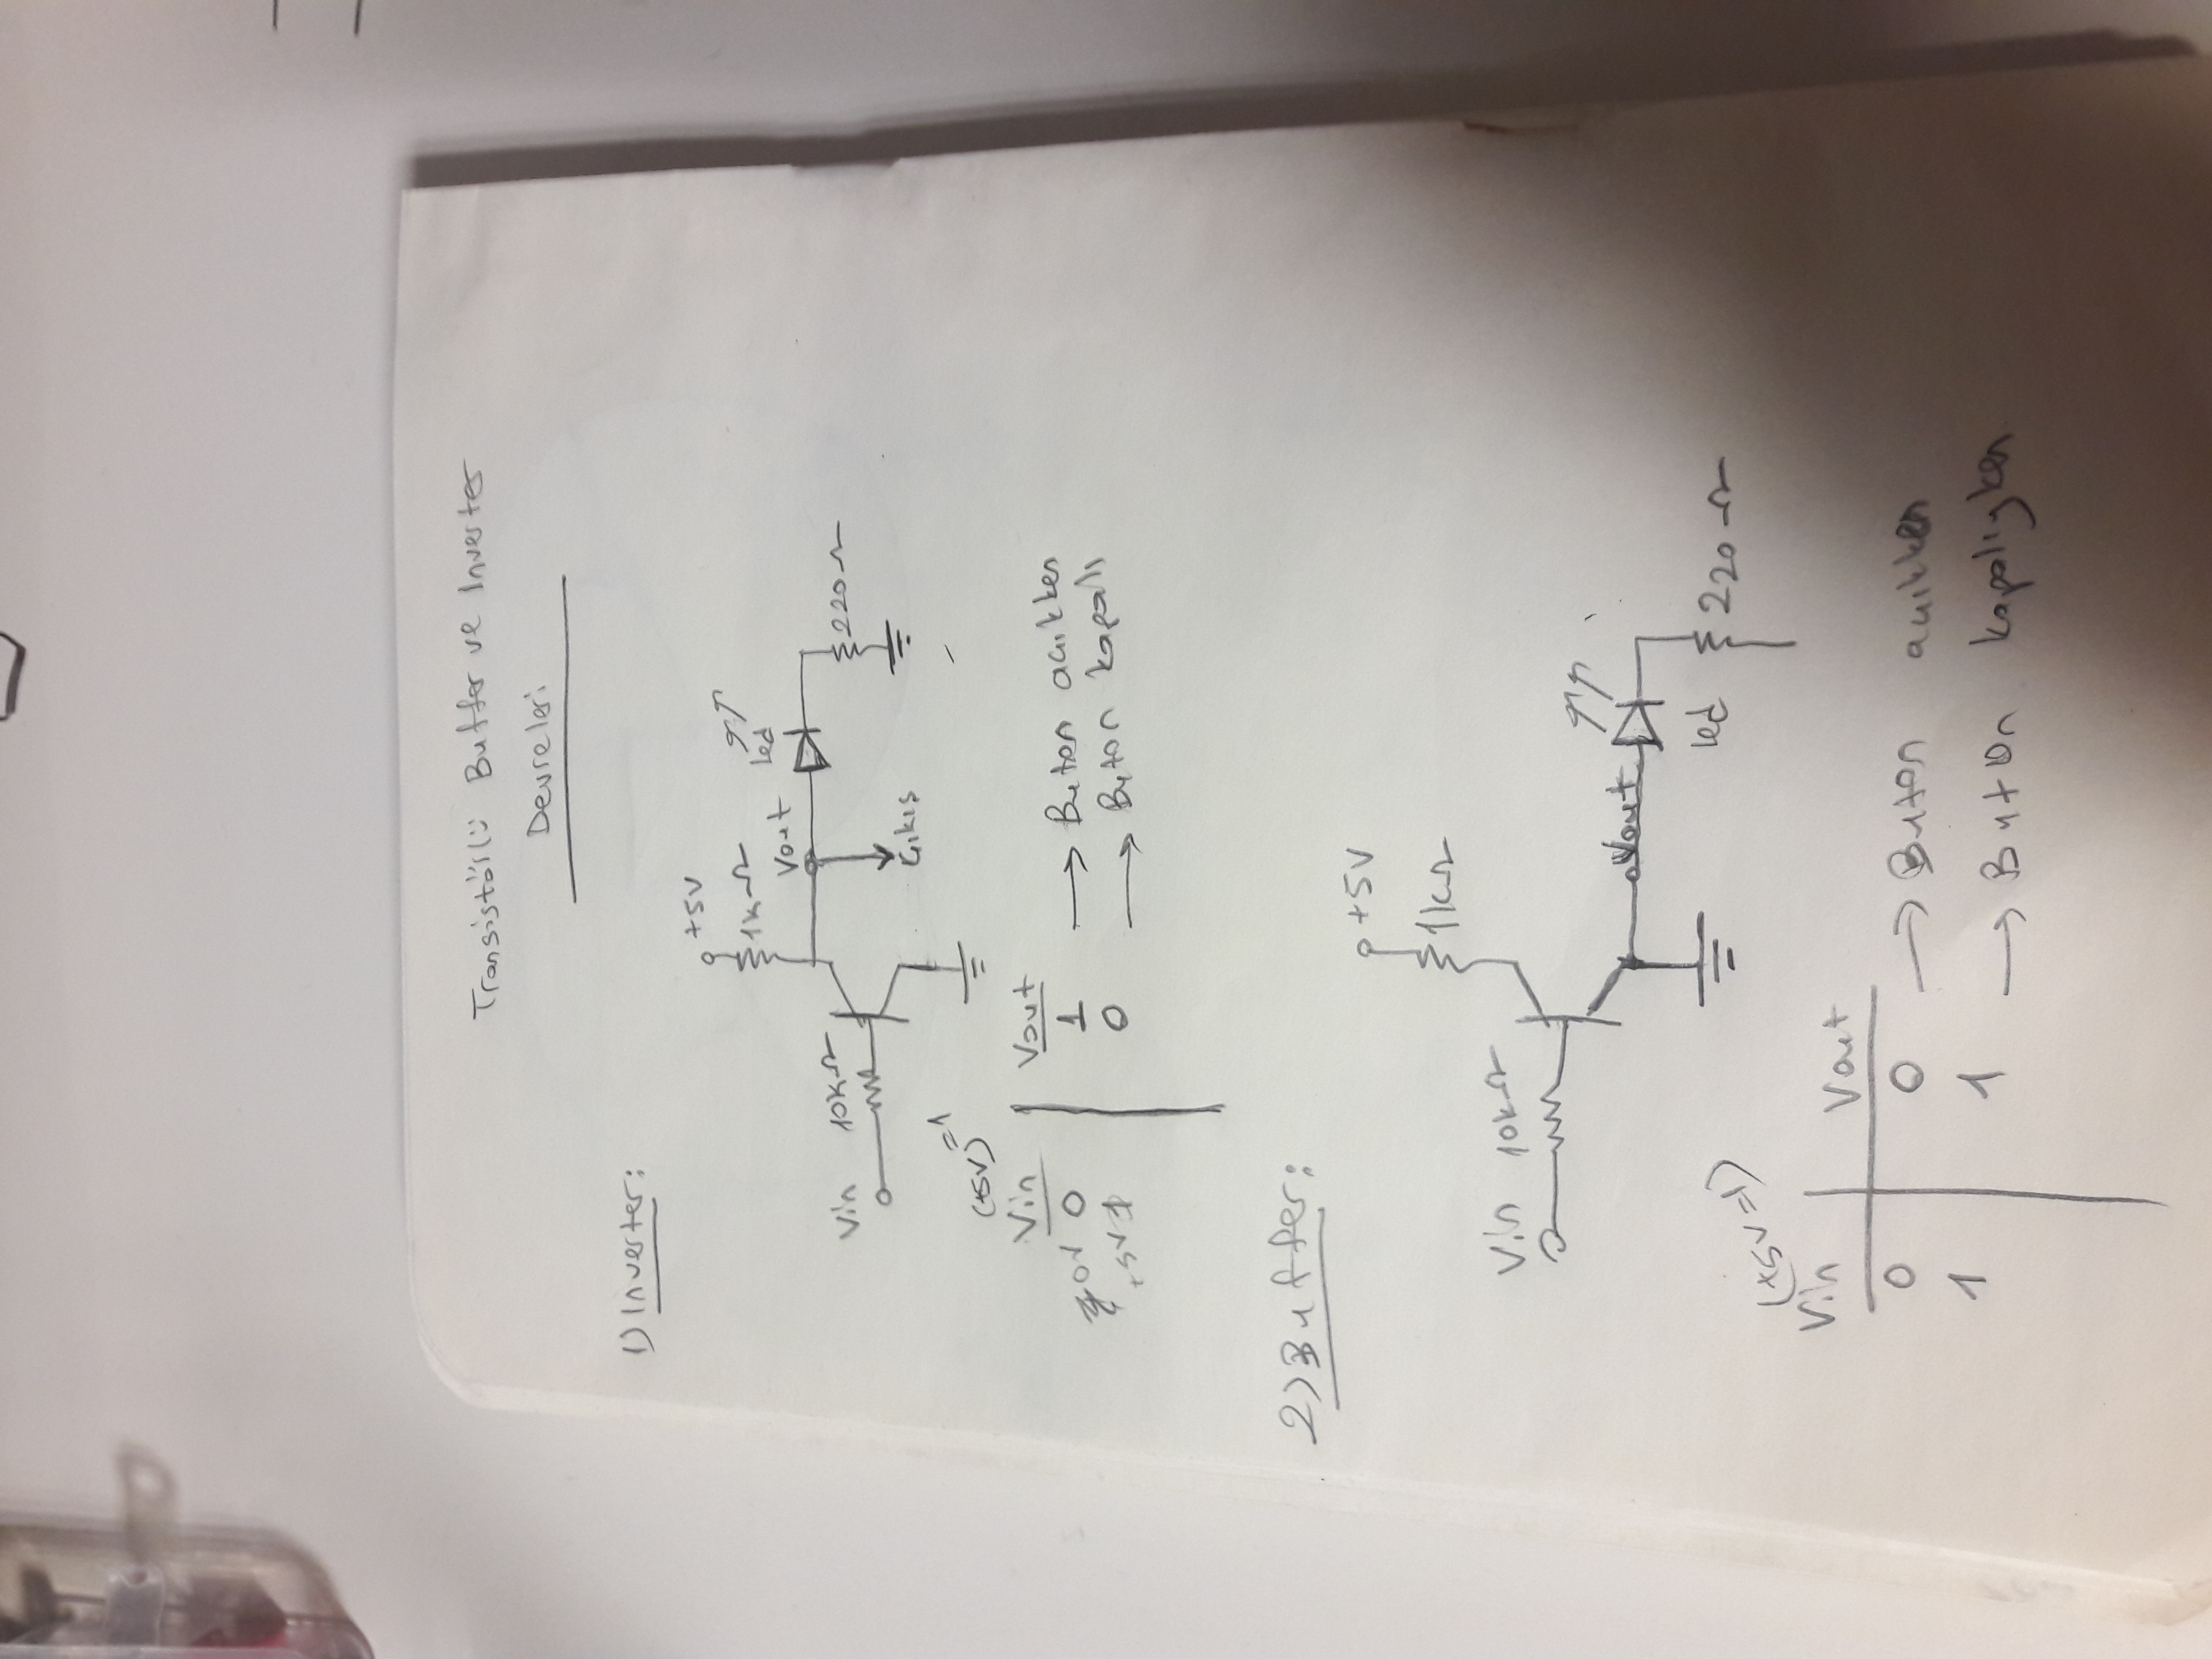 Transistörlü Buffer ve Inverter
Devreleri
1) Inverter:
+5V
1kΩ
Vout
Led
Vin 10kΩ
220Ω
Çıkış
(+5V)=1
Vin Vout
0V 0 1 → Buton açıkken
+5V 1 0 → Buton kapalı
2) Buffer:
+5V
1kΩ
Vin 10kΩ
Vout
led
220Ω
(+5V=1)
Vin Vout
0 0 → Buton açıkken
1 1 → Buton kapalıyken